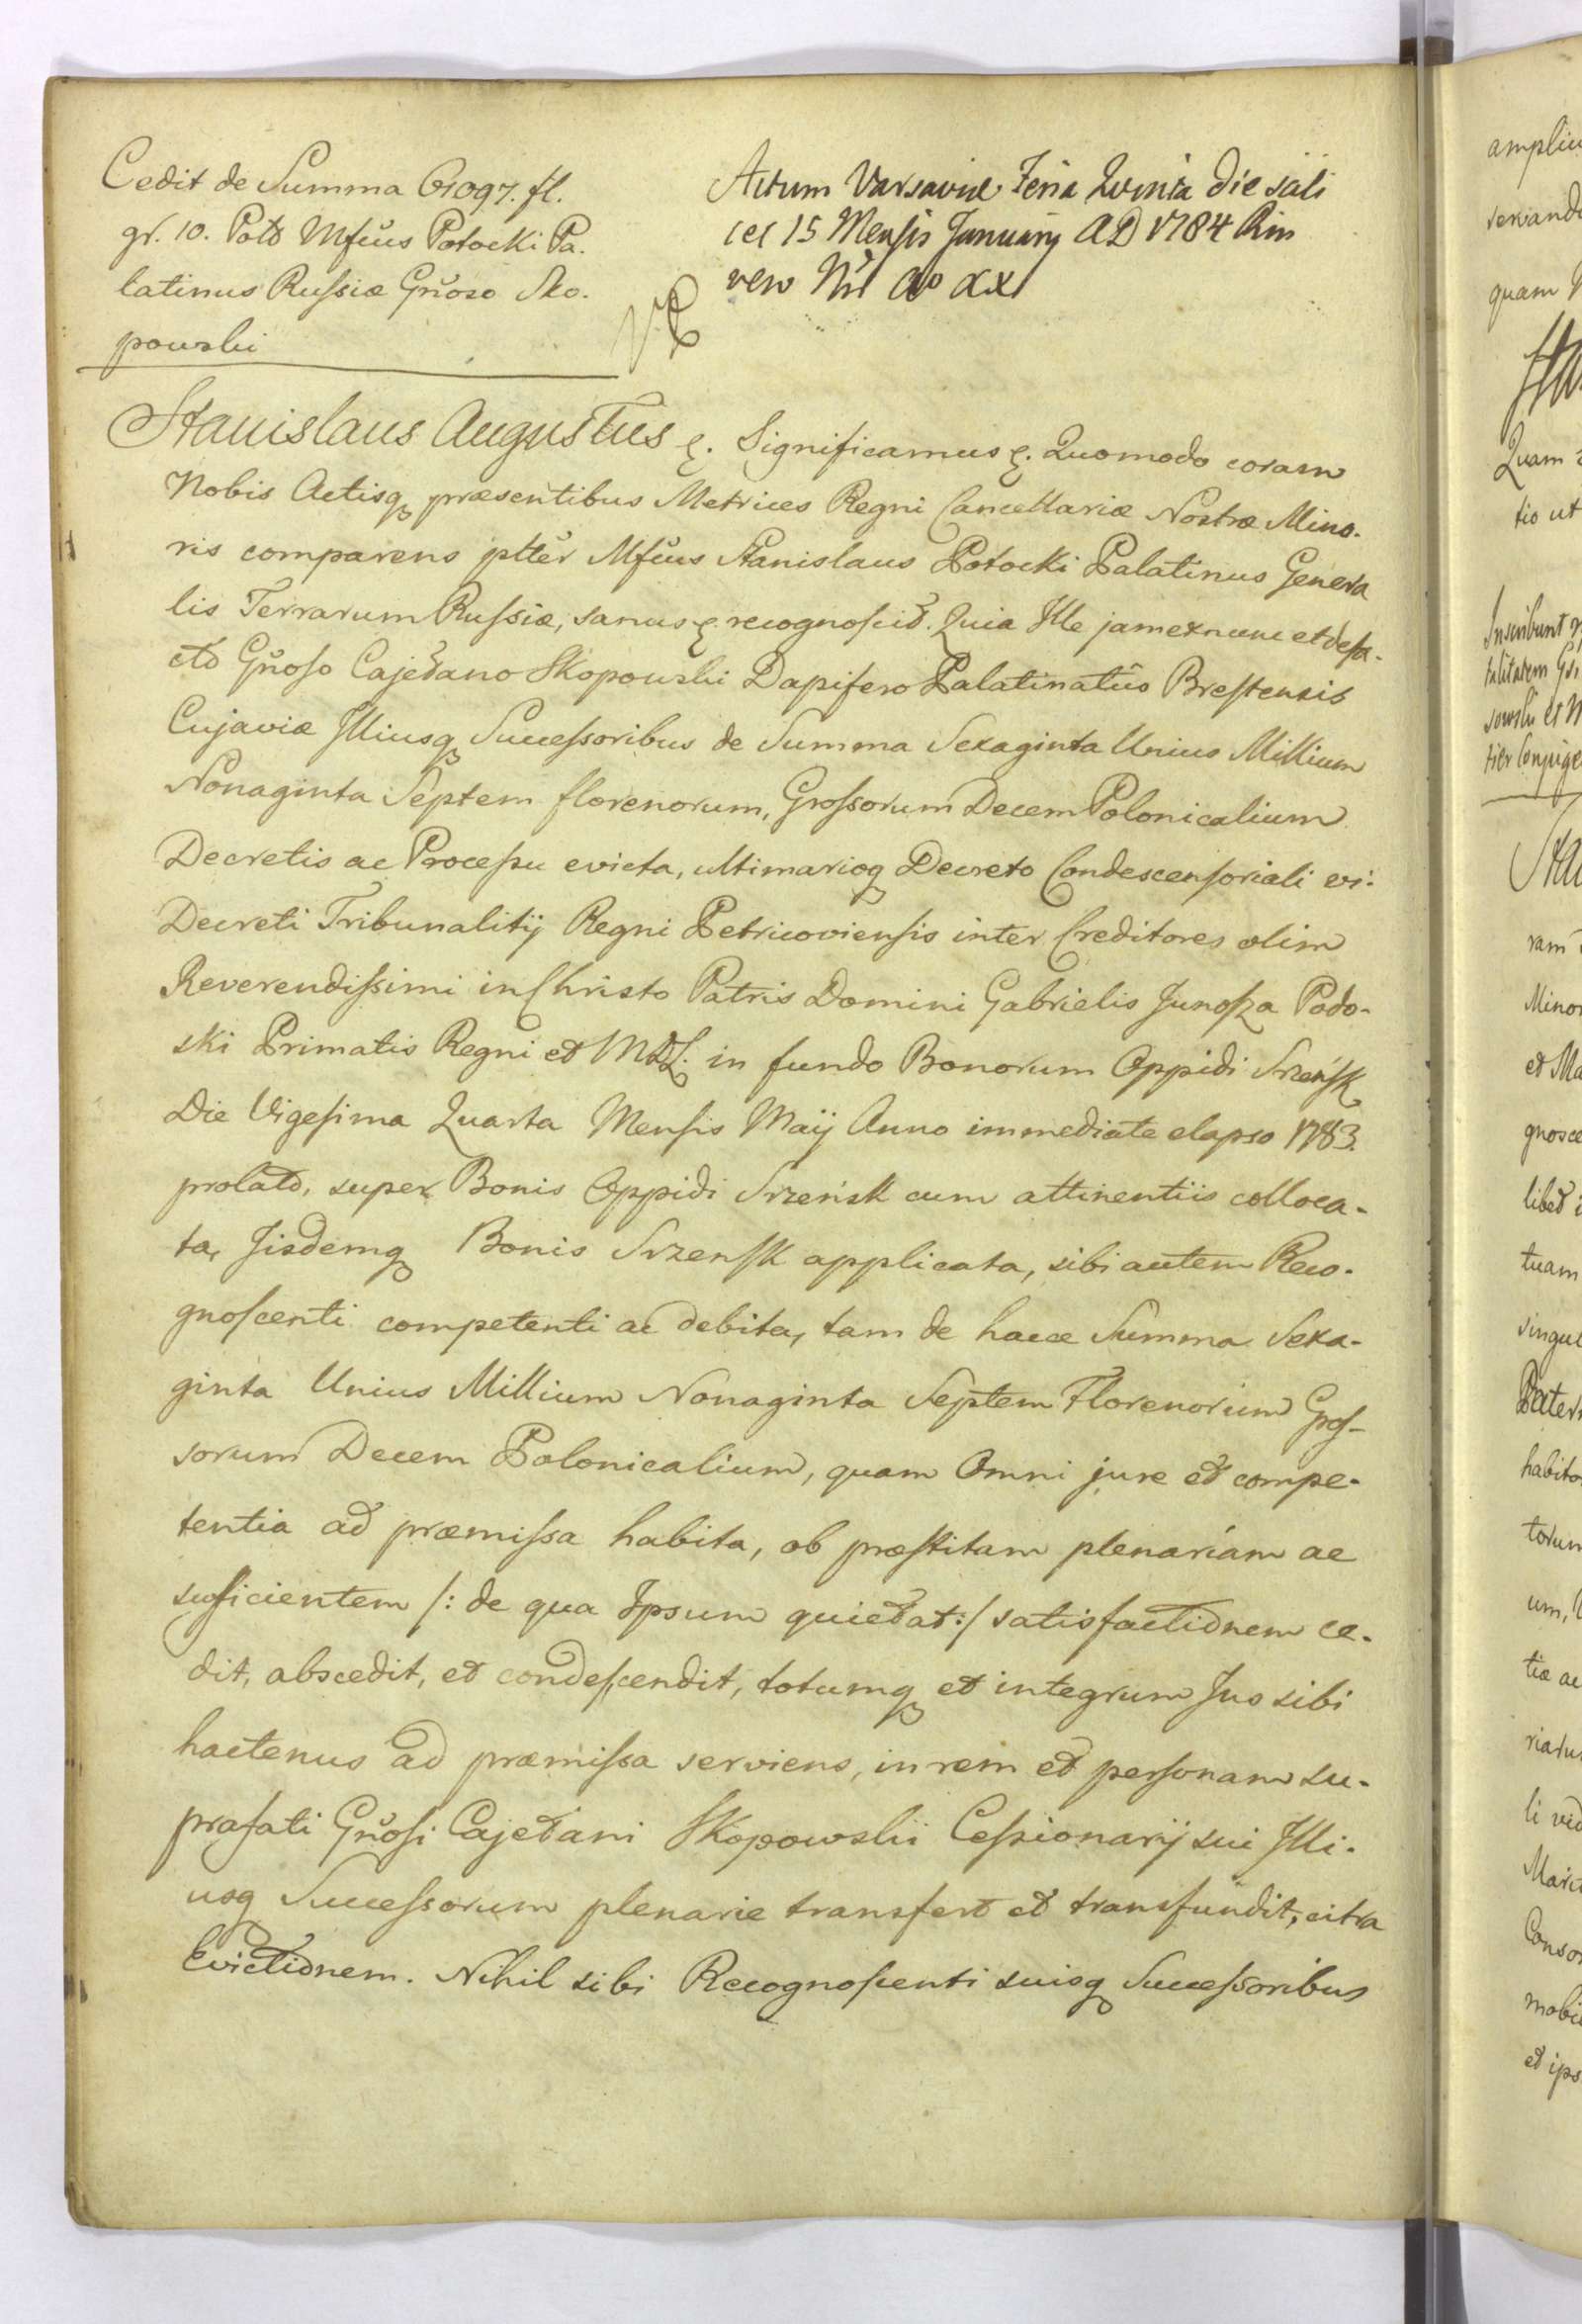 Cedit de Summa 61097. fl.
gr. 10. Polo Mfĕus Potocki Pa-
latinus Russiæ Gn̆oso Sko-
powski
Actum Varsaviæ Feria Quinta die scili
cet 15 Mensis Januarij AD 1784 Rni
vero Nr̃i Ao XX
Stanislaus Augustus &. Significamus &. Quomodo coram
Nobis Actisq præsentibus Metrices Regni Cancellariæ Nostræ Mino-
ris comparens pltĕr Mfĕus Stanislaus Potocki Palatinus Genera
lis Terrarum Russiæ, sanus &. recognoscit. Quia Ille jam ex nunc et de fa-
cto Gn̆oso Cajetano Skopowski Dapifero Palatinatûs Brestensis
Cujaviæ Illiusq Successoribus de Summa Sexaginta Unius Millium
Nonaginta Septem florenorum, Grossorum Decem Polonicalium
Decretis ac Processu evicta, ultimarioq Decreto Condescensoriali vi
Decreti Tribunalitij Regni Petricoviensis inter Creditores olim
Reverendissimi in Christo Patris Domini Gabrielis Junosza Podo-
ski Primatis Regni et MDL. in fundo Bonorum Oppidi Srzeńsk
Die Vigesima Quarta Mensis Maij Anno immediate elapso 1783.
prolato, super Bonis Oppidi Srzeńsk cum attinentiis colloca-
ta, Iisdemq Bonis Srzensk applicata, sibi autem Reco-
gnoscenti competenti ac debita, tam de hacce Summa Sexa-
ginta Unius Millium Nonaginta Septem Florenorum Gros-
sorum Decem Polonicalium, quam Omni jure et compe-
tentia ad præmissa habita, ob præstitam plenariam ac
sufficientem /: de qua Ipsum quietat :/ satisfactionem ce-
dit, abscedit, et condescendit, totumq et integrum Jus sibi
hactenus ad præmissa serviens, in rem et personam su-
prafati Gn̆osi Cajetani Skopowskii Cessionarij sui Illi-
usq Successorum plenarie transfert et transfundit, citra
Evictionem. Nihil sibi Recognoscenti suisq Successoribus